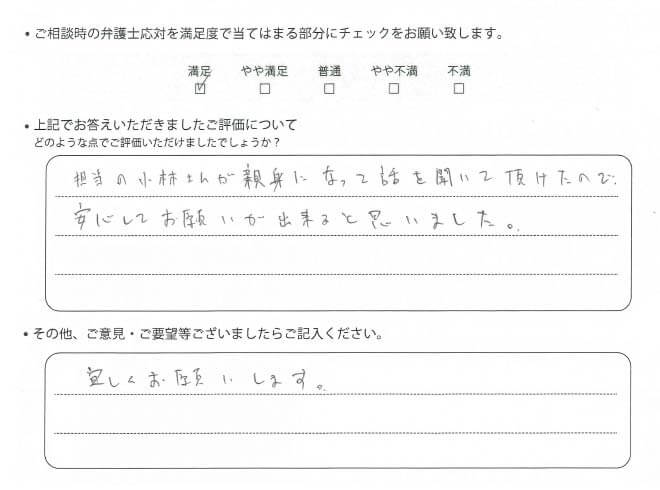 ・ご相談時の弁護士応対を満足度で当てはまる部分にチェックをお願い致します。
満足 やや満足 普通 やや不満 不満
☑ □ □ □ □
・上記でお答えいただきましたご評価について
どのような点でご評価いただけましたでしょうか？
担当の小林さんが親身になって話を聞いて頂けたので、
安心してお願いが出来ると思いました。
・その他、ご意見・ご要望等ございましたらご記入ください。
宜しくお願いします。